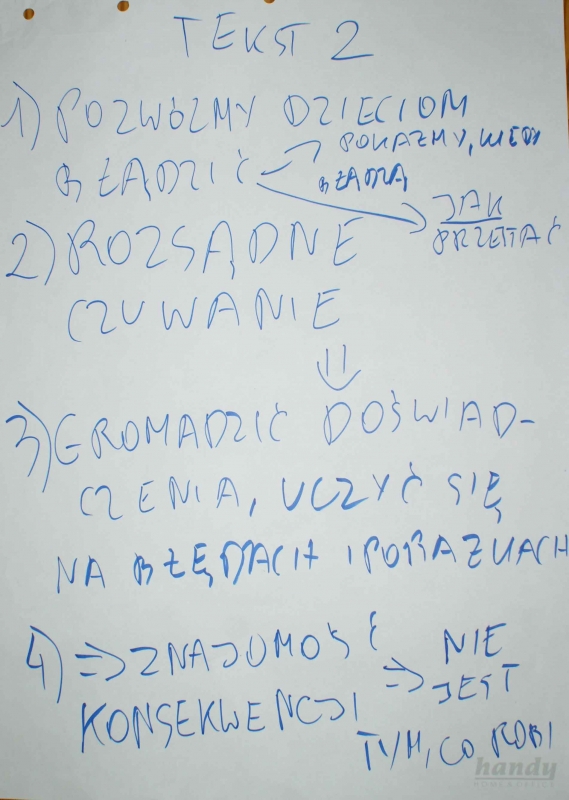 TEKST 2
1) POZWÓLMY DZIECIOM
BŁĄDZIĆ → POKAŻMY, KIEDY
BŁĄDZĄ
→ JAK
PRZESTAĆ
2) ROZSĄDNE
CZUWANIE
⇓
3) GROMADZIĆ DOŚWIAD-
CZENIA, UCZYĆ SIĘ
NA BŁĘDACH I PORAŻKACH
4) ⇒ ZNAJOMOŚĆ
KONSEKWENCJI ⇒ NIE
JEST
TYM, CO ROBI
handy